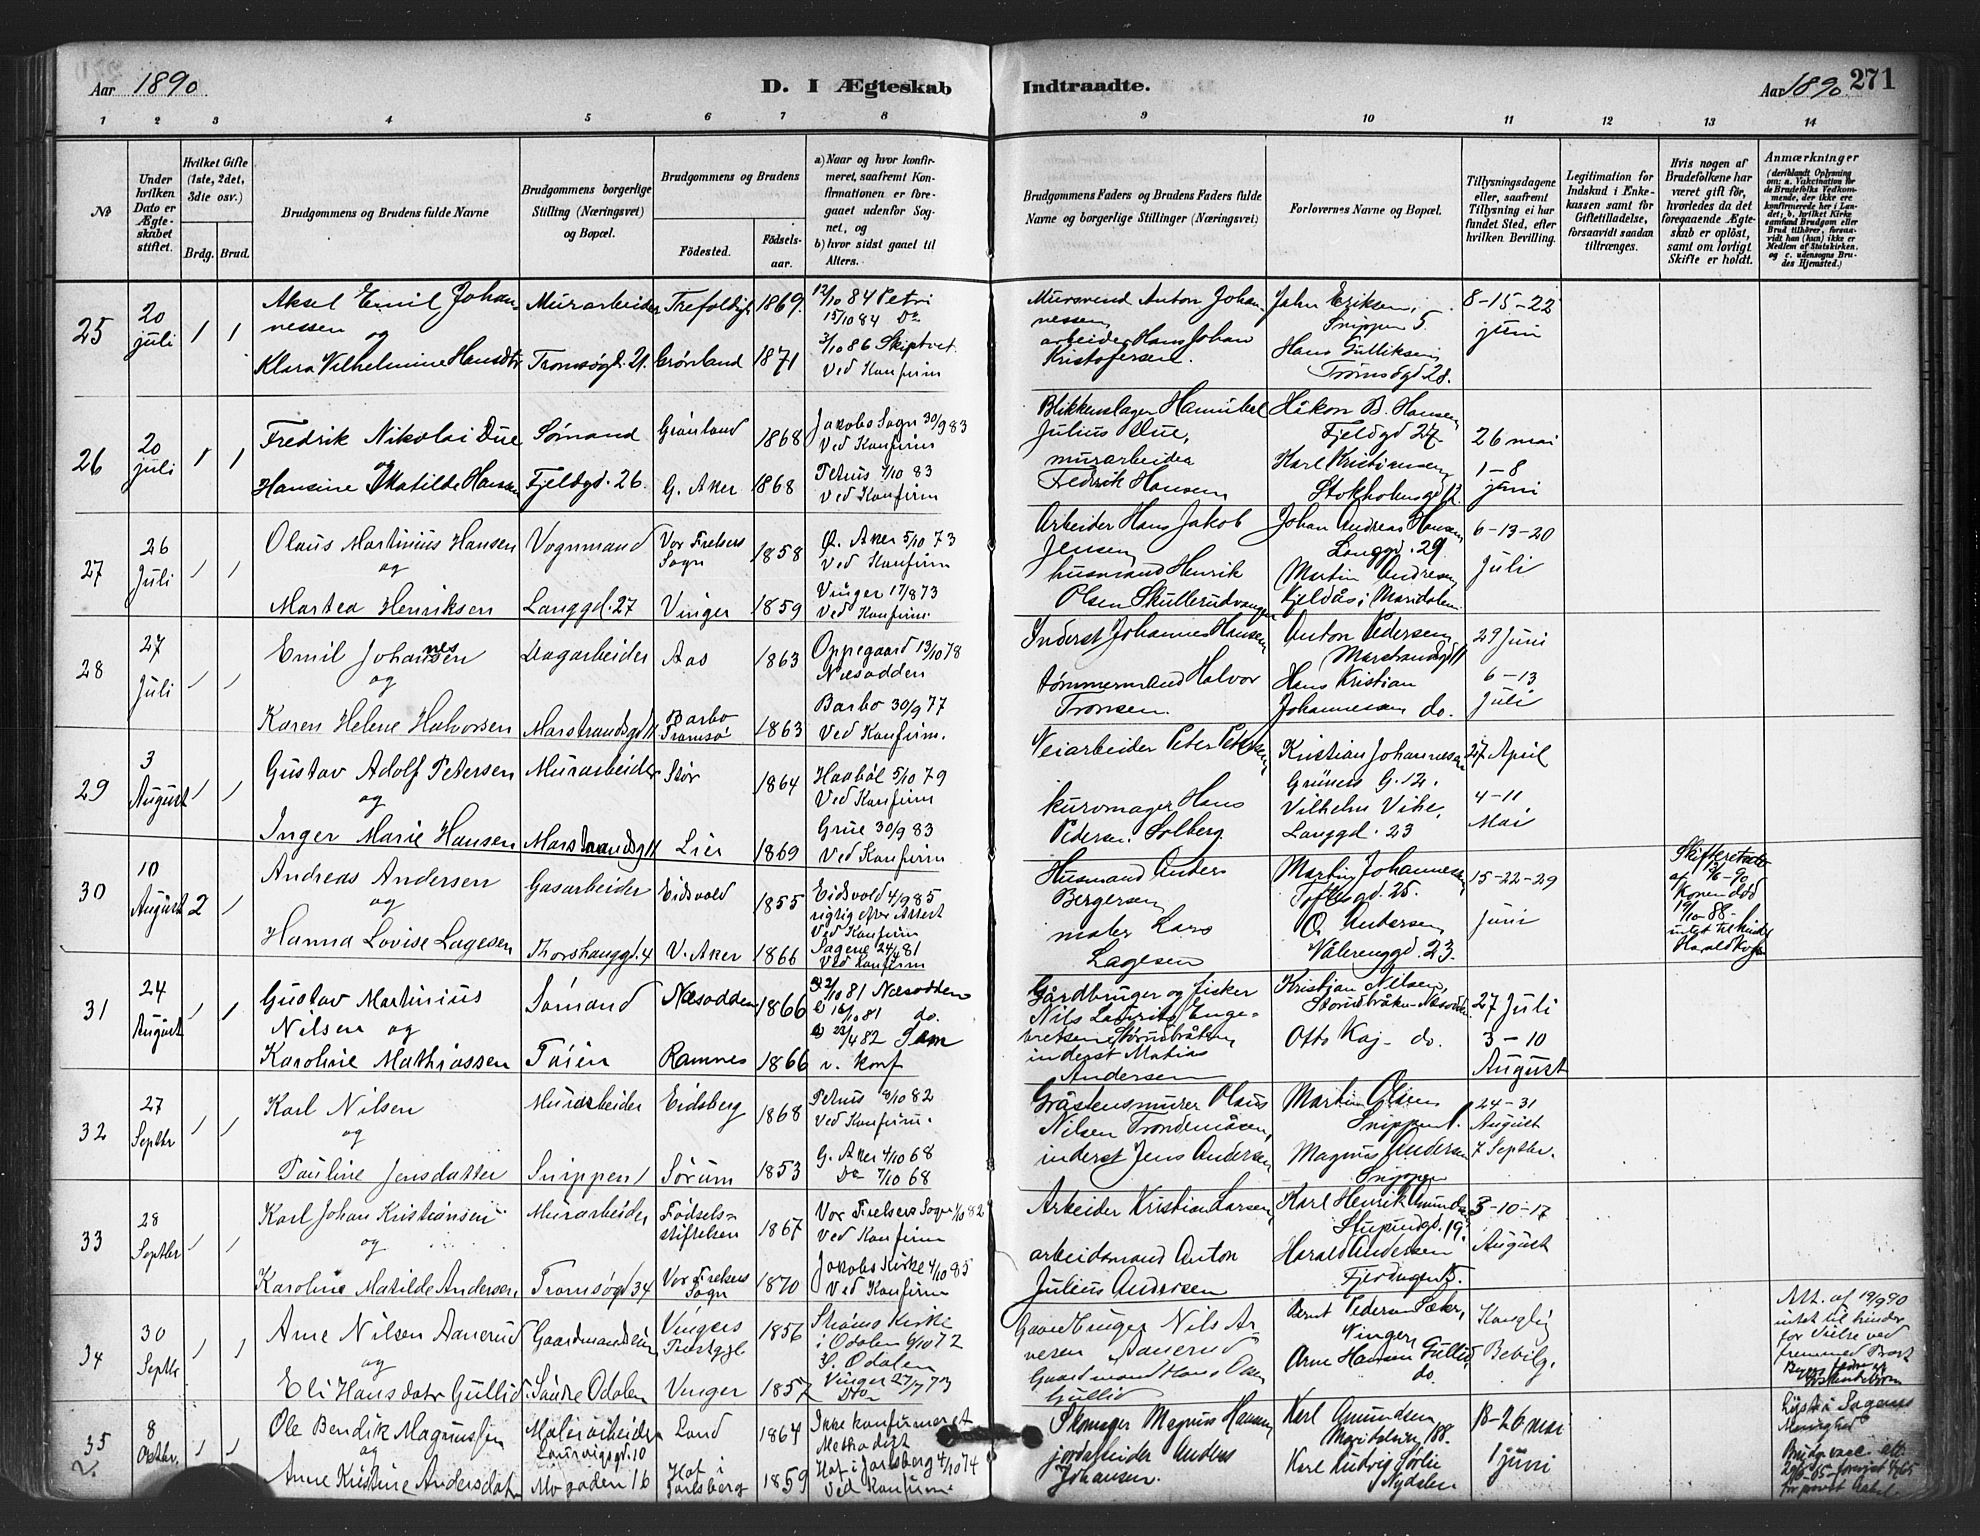 Aar 1890
D. I Ægteskab Indtraadte.
Aar 1890. 271
1 2 3 4 5 6 7 8 9 10 11 12 13 14
№
Under hvilken Dato er Ægteskabet stiftet.
Hvilket Gifte (1ste, 2det, 3die osv.)
Brdg. Brud.
Brudgommens og Brudens fulde Navne
Brudgommens borgerlige Stilling (Næringsvei) og Bopæl.
Brudgommens og Brudens
Födested.
Födsels-aar.
a) Naar og hvor konfirmeret, saafremt Konfirmationen er foregaaet udenfor Sognet, og
b) hvor sidst gaaet til Alters.
Brudgommens Faders og Brudens Faders fulde Navne og borgerlige Stillinger (Næringsvei)
Forlovernes Navne og Bopæl.
Tillysningsdagene eller, saafremt Tillysning ei har fundet Sted, efter hvilken Bevilling.
Legitimation for Indskud i Enkekassen samt for Giftetilladelse, forsaavidt saadan tiltrænges.
Hvis nogen af Brudefolkene har været gift för, hvorledes da det foregaaende Ægteskab er oplöst, samt om lovligt Skifte er holdt.
Anmærkninger
(deriblandt Oplysning om: a. Vakcination for de Brudefolks Vedkommende, der ikke ere konfirmerede her i Landet; b. hvilket Kirkesamfund Brudgom eller Brud tilhörer, forsaavidt han (hun) ikke er Medlem af Statskirken, og c. udensogns Brudes Hjemsted.)
25 20 juli 1 1
Aksel Emil Johannessen og
Klara Vilhelmine Hansdtr
Murarbeider Tromsögd. 21.
Trefoldigh 1869. 12/10 84 Petri
15/10 84 Do
Grönland 1871 3/10 86 Skiptvet
Ved Konfirm
Mursvend Anton Johannessen,
arbeider Hans Johan Kristofersen.
John Eriksen, Snippen 5.
Hans Gulliksen, Tromsögd 28.
8-15-22 juni
26 20 juli 1 1
Fredrik Nikolai Due
og
Hansine Matilde Hansen
Sömand Fjeldgd. 26.
Grönland 1868 Jakobs Sogn 30/9 83
Ved Konfirm
G. Aker 1868 Petrus 7/10 83
Ved Konfirm
Blikkenslager Hannibal Julius Due,
murarbeider Fredrik Hansen
Håkon B. Hansen, Fjeldgd 27
Karl Kristiansen, Stokholmsgd 12.
26 mai 1-8 juni
27 26 Juli 1 1
Olaus Martinius Hansen
og
Martea Henriksen
Vognmand Langgd. 27
Vor Frelsers Sogn 1858 Ø. Aker 5/10 73
Ved Konfirm
Vinger 1859 Vinger 17/8 73
Ved Konfirm.
Arbeider Hans Jakob Jensen,
husmand Henrik Olsen Skullerudvangen
Johan Andreas Hansen Langgd. 29
Martin Andresen Kjeldås i Maridalen
6-13-20 Juli
28 27 Juli 1 1
Emil Johannessen
og
Karen Helene Halvorsen
Dagarbeider Marstrandsgd 11
Aas 1863 Oppegaard 13/10 78
Næsodden
Barbo Tromsö 1863 Barbo 30/9 77
Ved Konfirm.
Inderst Johannes Hansen,
tömmermand Halvor Tronsen.
Anton Pedersen, Marstrandsgd 11
Hans Kristian Johannesen do.
29 Juni 6-13 Juli
29 3 August 1 1
Gustav Adolf Petersen
og
Inger Marie Hansen
Murarbeider Marstrandsgd 11
Stör 1864 Haaböl 5/10 79
Ved Konfirm
Lier 1869 Grue 30/9 83
Ved Konfirm
Veiarbeider Peter Petersen,
kurvmager Hans Pedersen Solberg.
Kristian Johannesen Grüners G. 12.
Vilhelm Vihe, Langgd. 23
27 April 4-11 Mai
30 10 August 2 1
Andreas Andersen
og
Hanna Lovise Lagesen
Gasarbeider Thorshauggd. 4
Eidsvold 1855 Eidsvold 4/9 85
rigtig efter Attest
Ved Konfirm
V. Aker 1866 Sagene 24/4 81
Ved Konfirm
Husmand Anders Bergersen,
maler Lars Lagesen
Martin Johannesen, Toftesgd. 25.
O. Andersen, Vålerenggd. 23.
15-22-29 juni
Skifteretsatt. af 12/6-90, Konen död 19/10-88-
31 24 August 1 1
Gustav Martinius Nilsen og
Karoline Mathiassen
Sömand Töien
Næsodden 1866 2/10 81 Næsodden
16/10 81 do.
Ramnes 1866 23/4 82 Sam
v. Konf
Gårdbruger og fisker Nils Laurits Engebretsen,
inderst Matias Andersen
Kristian Nilsen,
Otto Kaj- do.
27 Juli 3-10 August
32 27 Septbr 1 1
Karl Nilsen
og
Pauline Jensdatter
Murarbeider Snippen 1
Eidsberg 1868 Petrus 8/10 82
Ved Konfirm.
Sörum 1853 G. Aker 4/10 68
Do 7/10 68
Gråstensmurer Olaus Nilsen Trondemåsen,
inderst Jens Andersen
Martin Olsen Snippen 1.
Magnus Andersen Snippen
24-31 August 7 Septbr.
33 28 Septbr 1 1
Karl Johan Kristiansen
og
Karoline Matilde Andersen,
Murarbeider Tromsögd 34
Födselsstiftelsen 1867 Vor Frelsers Sogn 1/10 82
Ved Konfirm
Vor Frelsers Sogn 1870 Jakobs Kirke 4/10 85
Ved Konfirm
Arbeider Kristian Larsen,
arbeidsmand Anton Julius Andersen
Karl Henrik Amundsen Stupindgd. 19.
Harald Andersen Fjerdingen 5.
3-10-17 August
34 30 Septbr 1 1
Arne Nilsen Aanerud
og
Eli Hansdatr Gullid
Gaardmandssön Söndre Odalen
Vingers Præstgjl 1856 Ströms Kirke
i Odalen 6/10 72
S. Odalen
Vinger 1857 Vinger 27/7 73
Do
Gaardbruger Nils Arnesen Aanerud
Gaardmand Hans Olsen Gullid
Bernt Pedersen Vinger,
Arne Hansen Gullid, do.
Konglig Bevilg.
Att. af 19/9 90 intet til hinder for Vielse ved fremmed Præst
35 8 Oktbr. 1 1
Ole Bendik Magnussen
og
Anne Kristine Andersdat
Malerarbeider Laurvigsgd. 10
Mogaden 16
Land 1864 Ikke konfirmeret
Methodist
Hof i Jarlsberg 1859 Hof i Jarlsberg 4/10 74
Ved Konfirm.
Skomager Magnus Hansen,
jordarbeider Anders Johansen.
Karl Amundsen Maridalsvn 188.
Karl Ludvig Sörlie Nydalen
18-26 mai 1 juni
Lyst i Sagenes Menighed
Brudg. vacc. att.